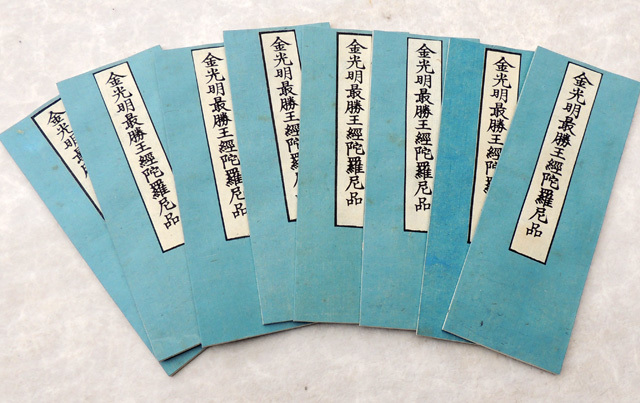 金光明最
金光明最勝王經陀羅尼品
金光明最勝王經陀羅尼品
金光明最勝王經陀羅
金光明最勝王經陀羅尼品
金光明最勝王經陀羅尼品
金光明最勝王經陀
金光明最勝王經陀羅尼品